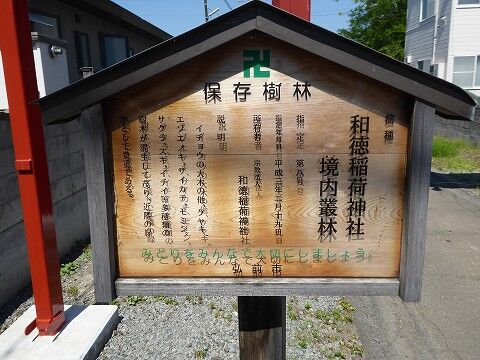 卍
保存樹林
樹種
和徳稲荷神社
境内叢林
指定 第八号
指定年月日 平成三年三月二十九日
所有者 宗教法人
和徳稲荷神社
説明
イチョウの大木の他、ケヤキ、
エゾエノキ、サイカチ、モミジ、
サクラ、スギ、イチイ等多種類の
樹木が混生して茂り、近隣の
として貴重である。
みどりをみんなで大切にしましょう
弘前市